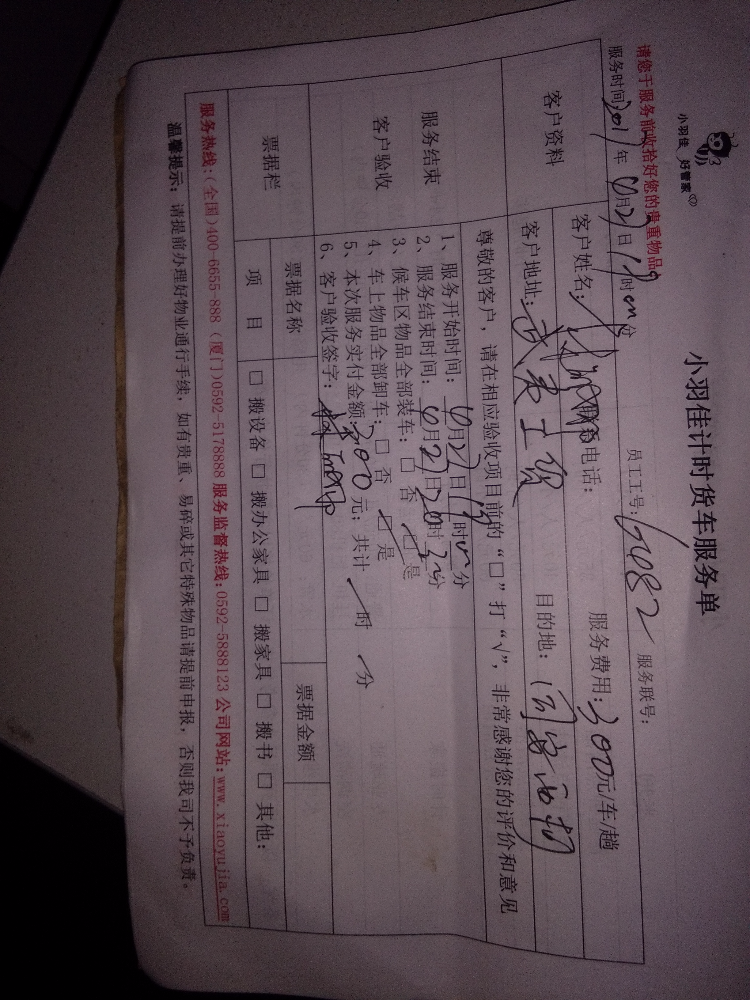 小羽佳 好管家
小羽佳计时货车服务单
请您于服务前收拾好您的贵重物品
员工工号: 5082 服务联号:
服务时间: 2011年 10月27日 19时 分
客户资料 客户姓名: 联系电话: 服务费用: 300元/车/趟
客户地址: 武夷工贸 目的地: 同安西柯
服务结束 客户验收 尊敬的客户, 请在相应验收项目前的 “□” 打 “√”, 非常感谢您的评价和意见
1、服务开始时间: 10月27日 19时 分
2、服务结束时间: 10月27日 20时 分
3、候车区物品全部装车: □ 否 □ 是
4、车上物品全部卸车: □ 否 □ 是
5、本次服务实付金额: 300 元; 共计 时 分
6、客户验收签字:
票据栏 票据名称 票据金额
项 目 □ 搬设备 □ 搬办公家具 □ 搬家具 □ 搬书 □ 其他:
服务热线:(全国)400-6655-888 (厦门)0592-5178888 服务监督热线:0592-5888123 公司网站:www.xiaoyujia.com
温馨提示: 请提前办理好物业通行手续, 如有贵重、易碎或其它特殊物品请提前申报, 否则我司不予负责。